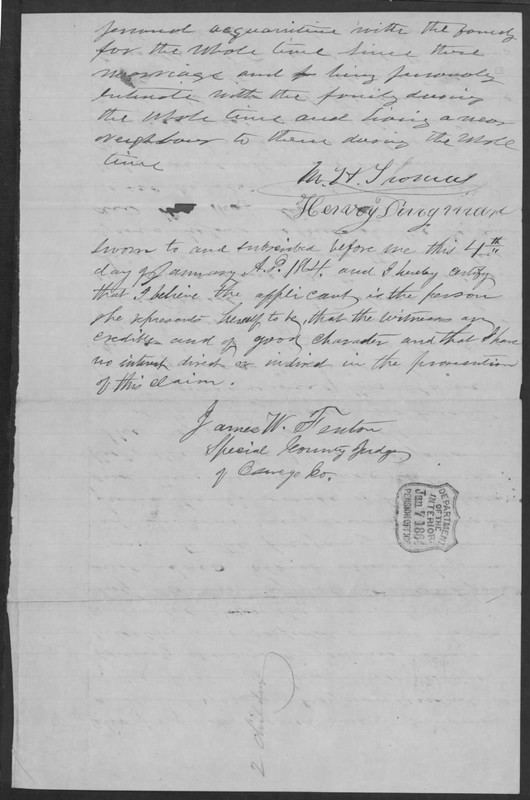 personal acquaintince with the family
for the whole time since there
marriage and by being personaly
intimate with the family during
the whole time and living a near
neighbour to them during the whole
time
M. H. Thomas
Hervey Dingman
sworn to and subscribed before me this 4th
day of January A.D. 1864 and I hereby certify
that I believe the applicant is the person
she represents herself to be, that the witnesses are
credible and of good character and that I have
no interest direct or indirect in the prosecution
of this claim.
James W. Fenton
Special County Judge
of Oswego Co.
DEPARTMENT
OF THE
INTERIOR
Jan 7 1864
PENSION OFFICE
2 Children